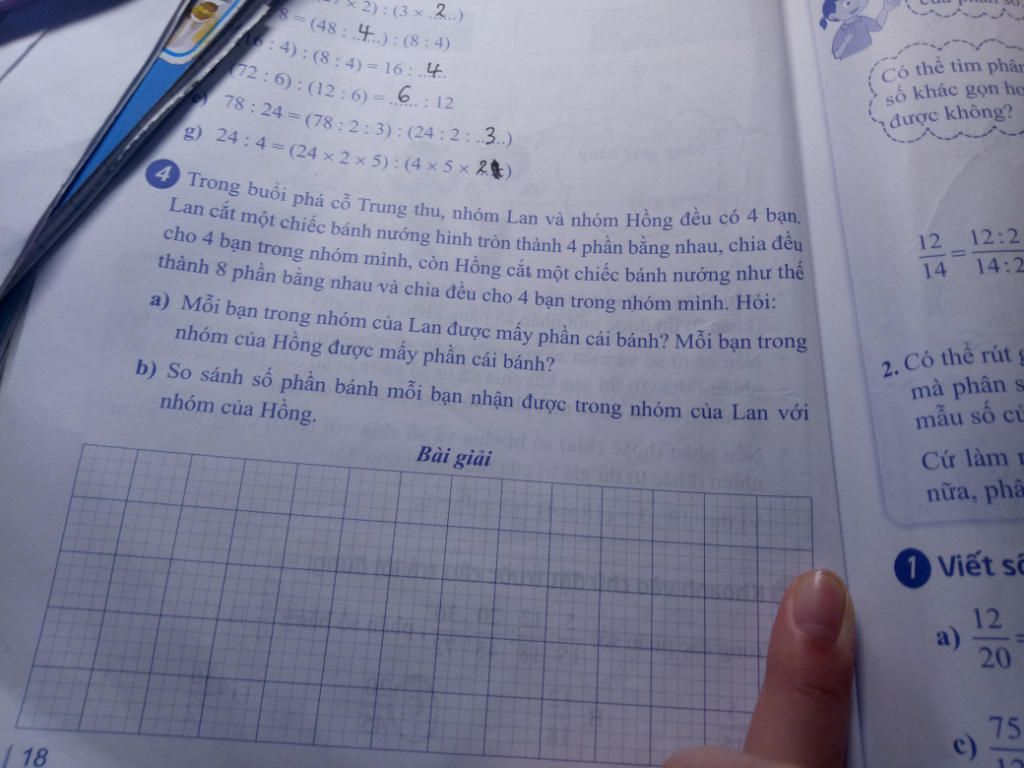 × 2) : (3 × ..2..)
8 = (48 : ..4..) : (8 : 4)
16 : 4) : (8 : 4) = 16 : ..4..
(72 : 6) : (12 : 6) = ..6.. : 12
e) 78 : 24 = (78 : 2 : 3) : (24 : 2 : ..3..)
g) 24 : 4 = (24 × 2 × 5) : (4 × 5 × 2)
4 Trong buổi phá cỗ Trung thu, nhóm Lan và nhóm Hồng đều có 4 bạn.
Lan cắt một chiếc bánh nướng hình tròn thành 4 phần bằng nhau, chia đều
cho 4 bạn trong nhóm mình, còn Hồng cắt một chiếc bánh nướng như thế
thành 8 phần bằng nhau và chia đều cho 4 bạn trong nhóm mình. Hỏi:
a) Mỗi bạn trong nhóm của Lan được mấy phần cái bánh? Mỗi bạn trong
nhóm của Hồng được mấy phần cái bánh?
b) So sánh số phần bánh mỗi bạn nhận được trong nhóm của Lan với
nhóm của Hồng.
Bài giải
18
Có thể tìm phân
số khác gọn
được không?
12/14 = 12 : 2/14 : 2
2. Có thể rút
mà phân
mẫu số
Cứ làm
nữa,
1 Viết
a) 12/20 =
c) 75